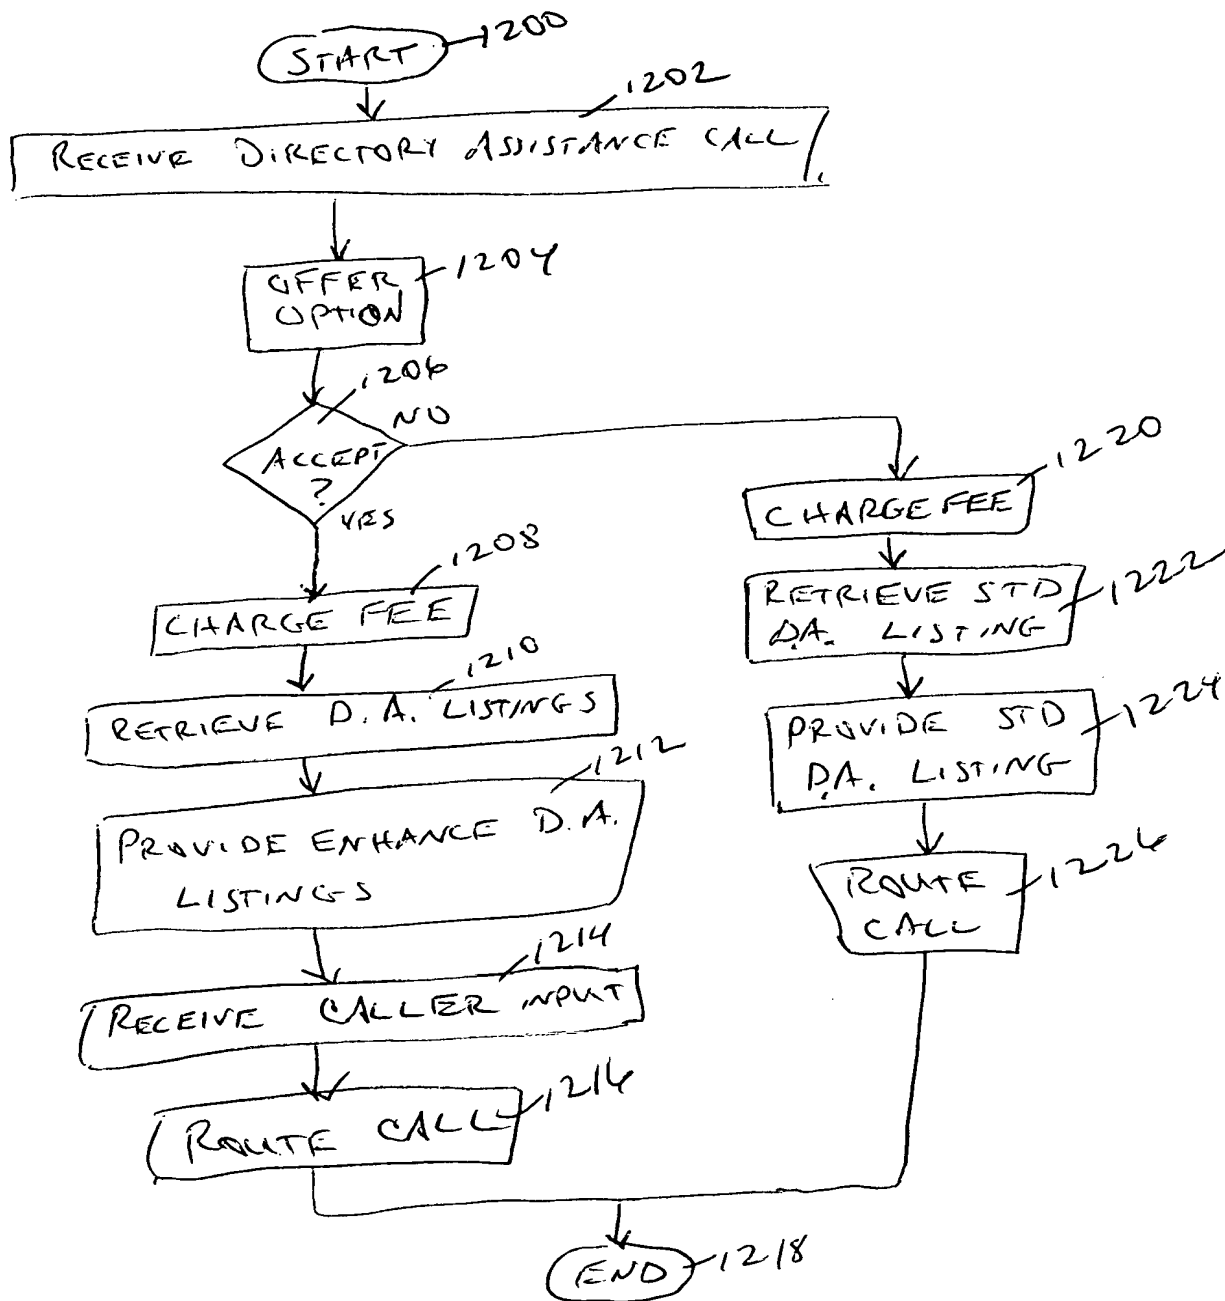 START
1200
1202
RECEIVE DIRECTORY ASSISTANCE CALL
OFFER
OPTION
1204
1206
ACCEPT
?
NO
YES
1208
CHARGE FEE
1210
RETRIEVE D.A. LISTINGS
1212
PROVIDE ENHANCE D.A.
LISTINGS
1214
RECEIVE CALLER INPUT
ROUTE CALL
1216
1220
CHARGE FEE
RETRIEVE STD
D.A. LISTING
1222
PROVIDE STD
D.A. LISTING
1224
ROUTE
CALL
1226
END
1218